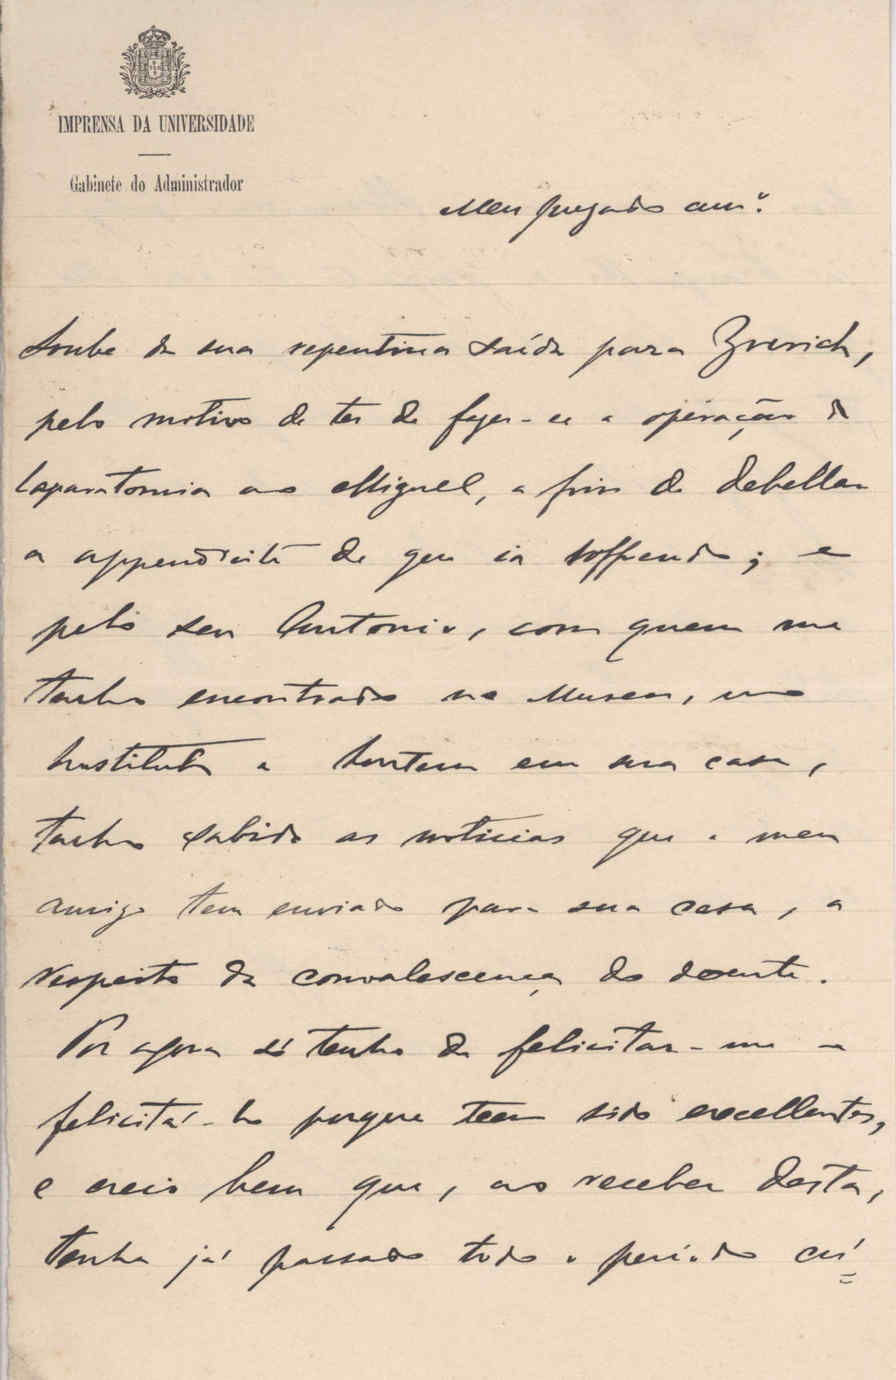 IMPRENSA DA UNIVERSIDADE
Gabinete do Administrador
Meu presado am.º
Soube da sua repentina saída para Zurich,
pelo motivo de ter de fazer-se a operação da
laparatomia ao Miguel, a fim de debellar
a appendicite de que ia soffrendo; e
pelo seu Antonio, com quem me
tenho encontrado no Museu, no
Instituto e hontem em sua casa,
tenho sabido as noticias que o meu
amigo tem enviado para sua casa, a
respeito da convalescença do doente.
Por agora só tenho de felicitar-me e
felicitá-lo porque teem sido excellentes,
e creio bem que, ao receber desta,
tenha já passado todo o periodo crí=